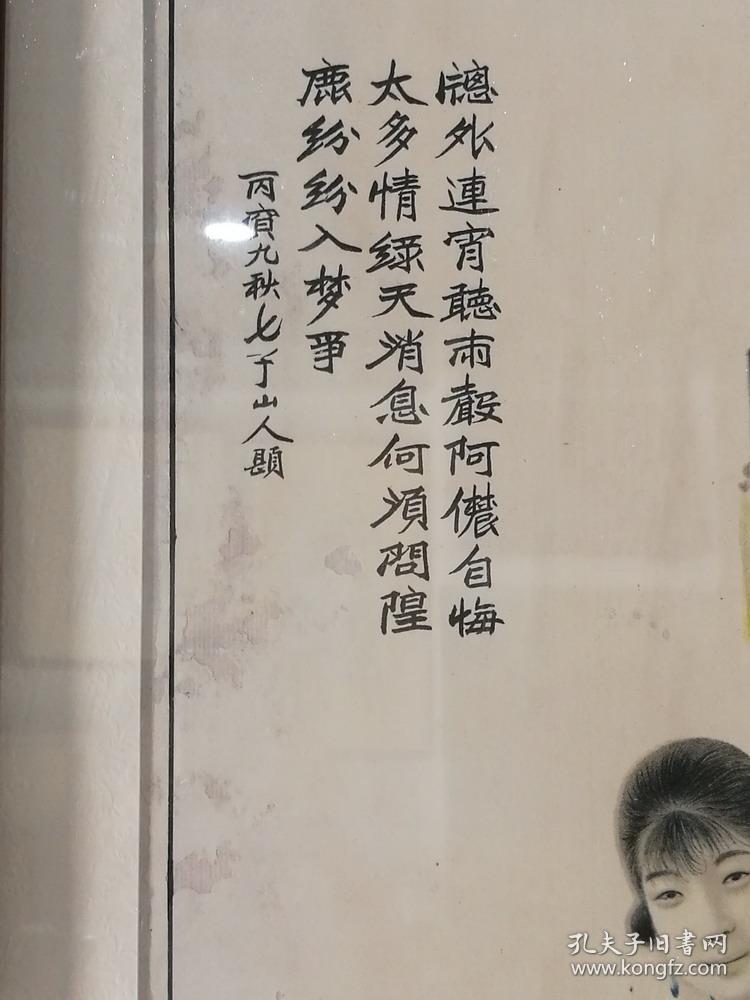 牕外連宵聽雨聲阿儂自悔
太多情綠天消息何須問隍
鹿紛紛入梦爭
丙寅九秋七子山人題
孔夫子旧書网
www.kongfz.com